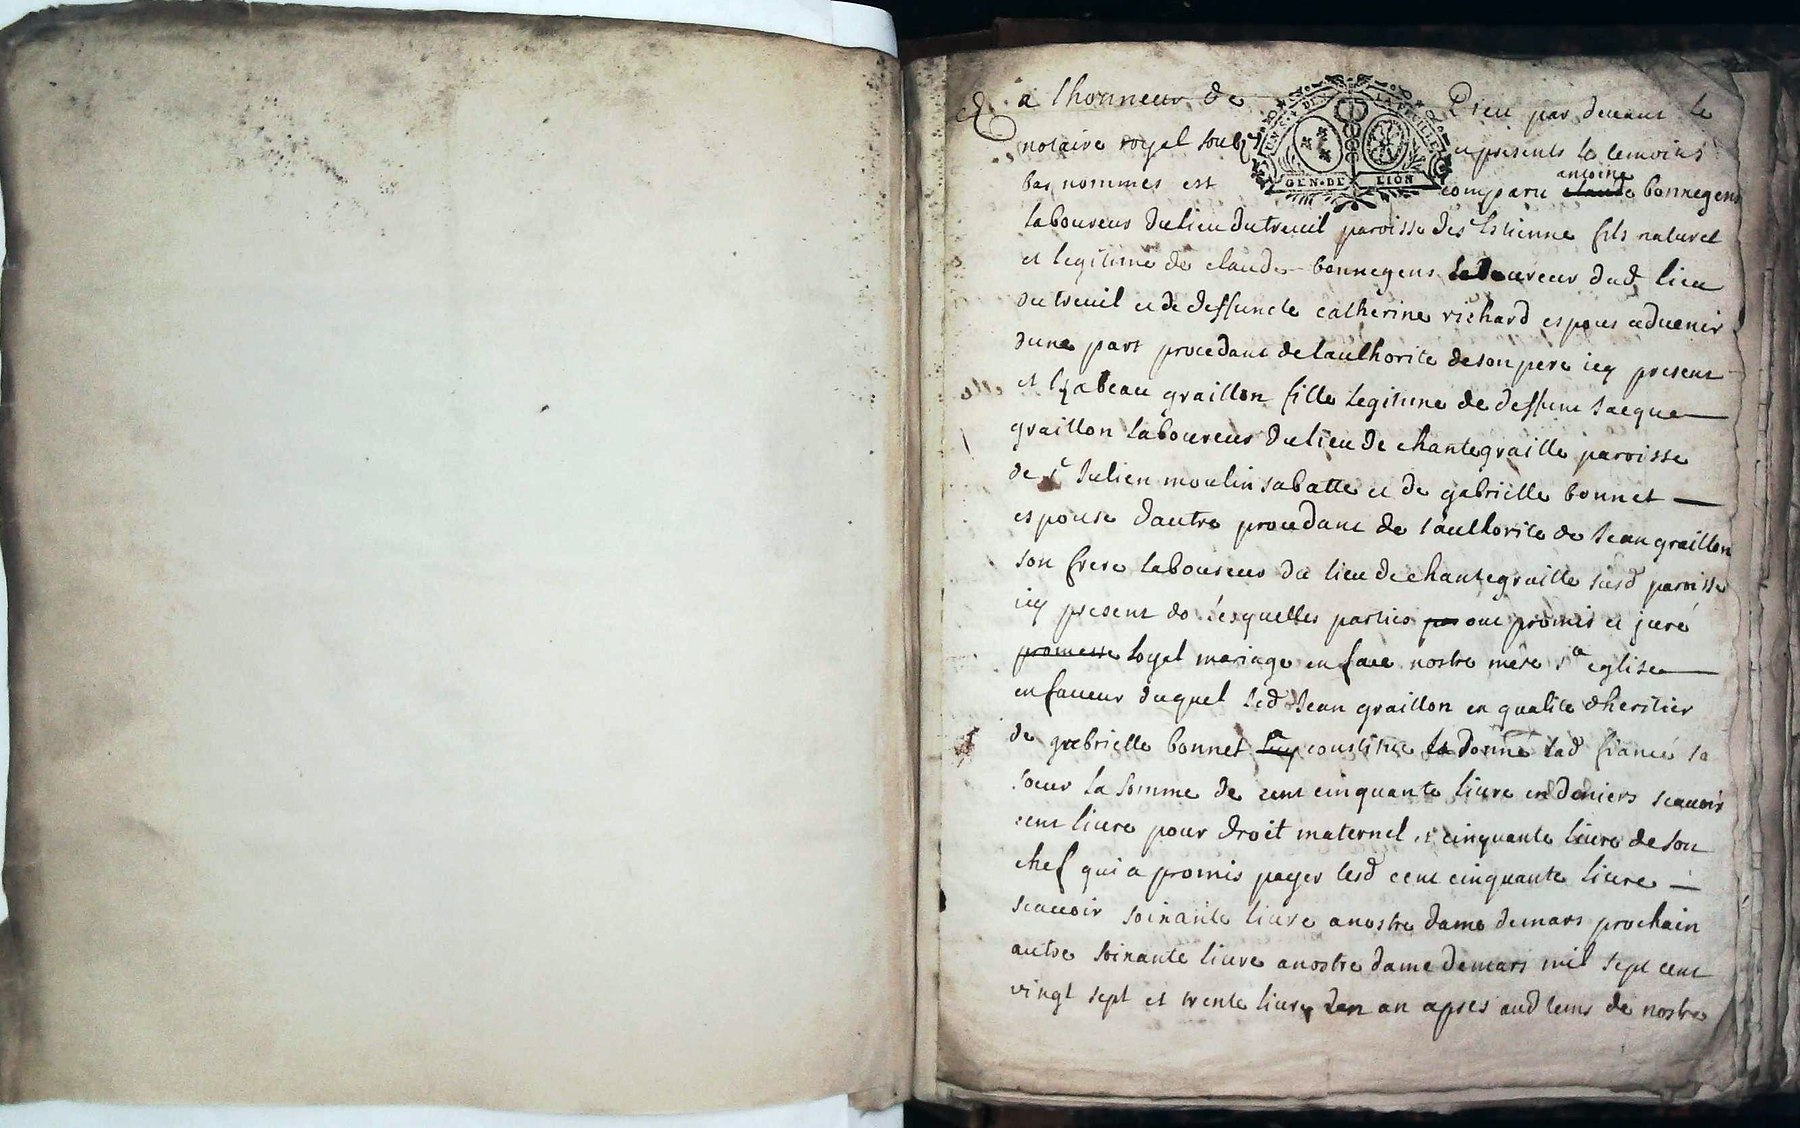 a lhonneur de Dieu par devant le
notaire royal soubz et presents les temoins
bas nommes est comparu claude antoine bonnegens
UN S. 4 DEN LA FEUILLE
GEN. DE LION
laboureur du lieu du treuil paroisse de st Estienne fils naturel
et legitime de claude bonnegens laboureur dud lieu
du treuil et de deffuncte catherine richard espous advenir
dune part procedant de laulhorite de son pere icy present
et Izabeau graillon fille legitime de deffunt Jacque
graillon laboureur du lieu de chantegraille paroisse
de st Julien moulin sabatte et de gabrielle bonnet
espouse dautre procedant de laulhorite de Jean graillon
son frere laboureur du lieu de chantegraille susd paroisse
icy present lesquelles parties ont promis et juré
promesse loyal mariage en face nostre mere sa eglise
en faveur duquel led Jean graillon en qualite dheritier
de gabrielle bonnet a constitue donné lad fiancé sa
soeur la somme de cent cinquante livre en deniers scavoir
cent livre pour droit maternel et cinquante livre de son
chef qui a promis payer lesd cent cinquante livre
scavoir soixante livre a nostre dame de mars prochain
autre soixante livre a nostre dame de mars mil sept cent
vingt sept et trente livre un an apres aud tems de nostre